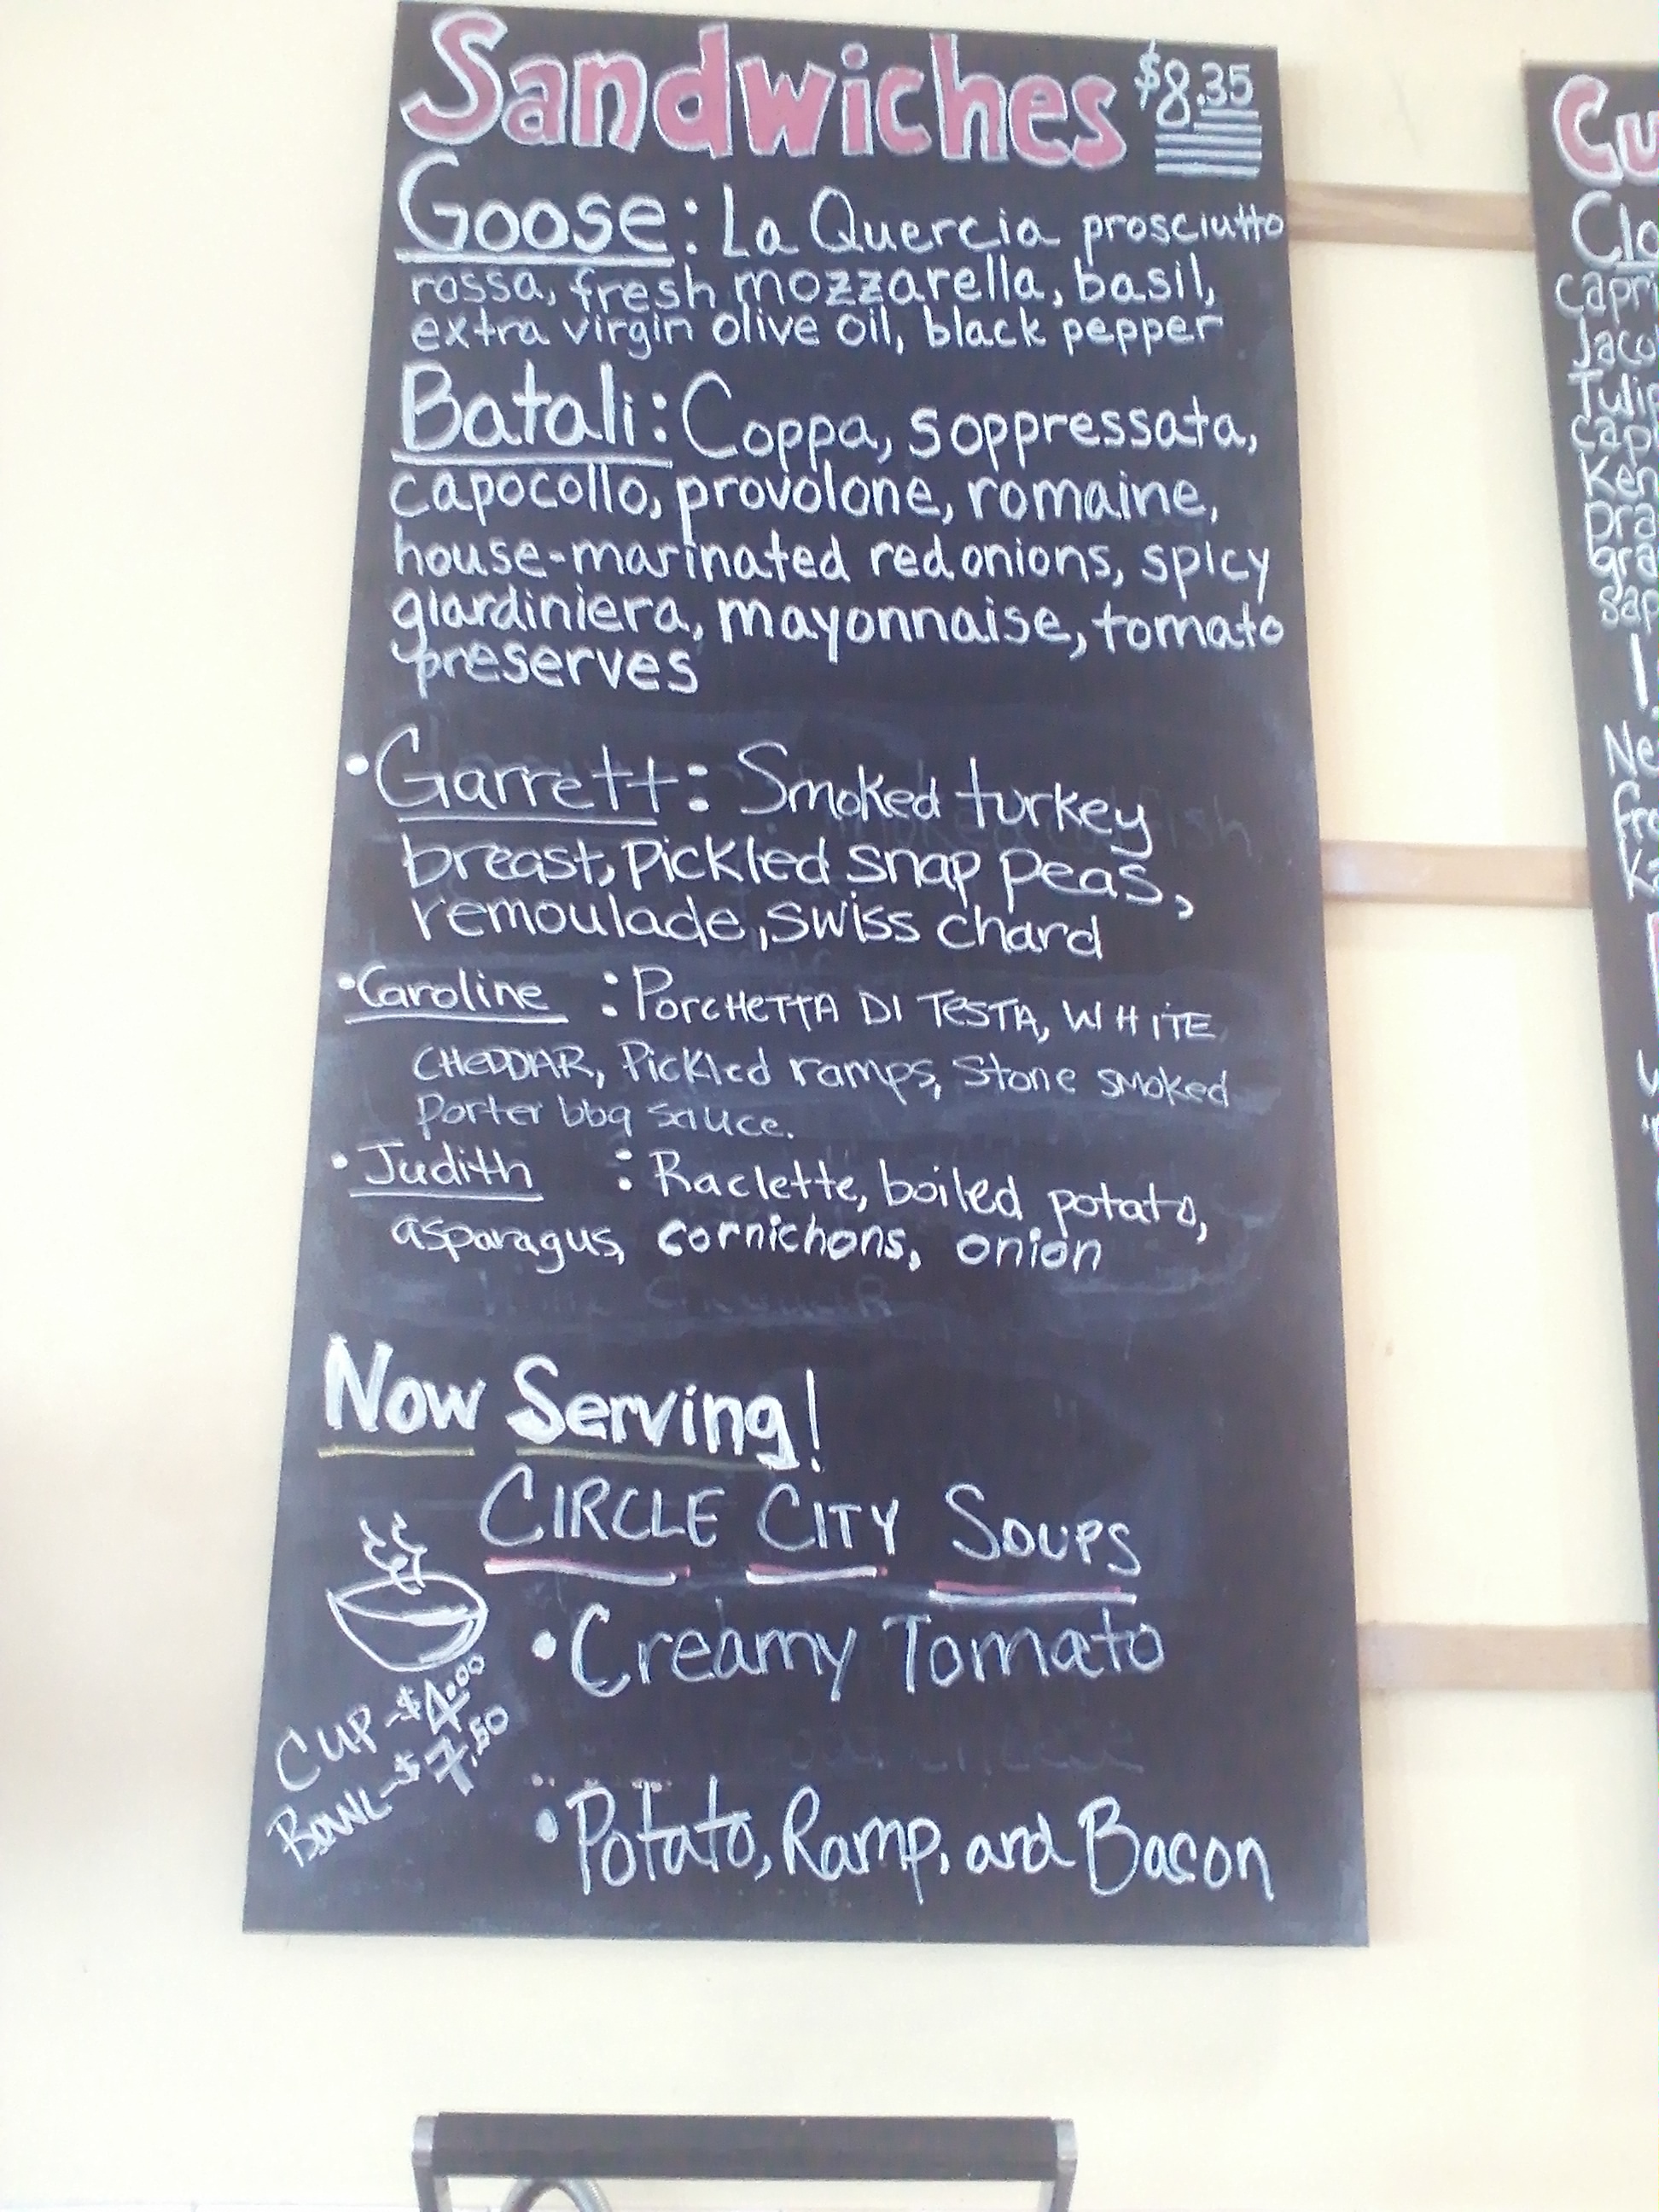 Sandwiches $8.35
Goose: La Quercia prosciutto
rossa, fresh mozzarella, basil,
extra virgin olive oil, black pepper
Batali: Coppa, soppressata,
capocollo, provolone, romaine,
house-marinated red onions, spicy
giardiniera, mayonnaise, tomato
preserves
• Garrett: Smoked turkey
breast, pickled snap peas,
remoulade, swiss chard
• Caroline : PORCHETTA DI TESTA, WHITE
CHEDDAR, Pickled ramps, Stone smoked
porter bbq sauce.
• Judith : Raclette, boiled potato,
asparagus, cornichons, onion
Now Serving!
CIRCLE CITY SOUPS
• Creamy Tomato
CUP - $4.00
BOWL - $7.50
• Potato, Ramp, and Bacon
Cu
Clo
capri
Jaco
Tulip
Ken
Dra
gra
sap
Ne
fre